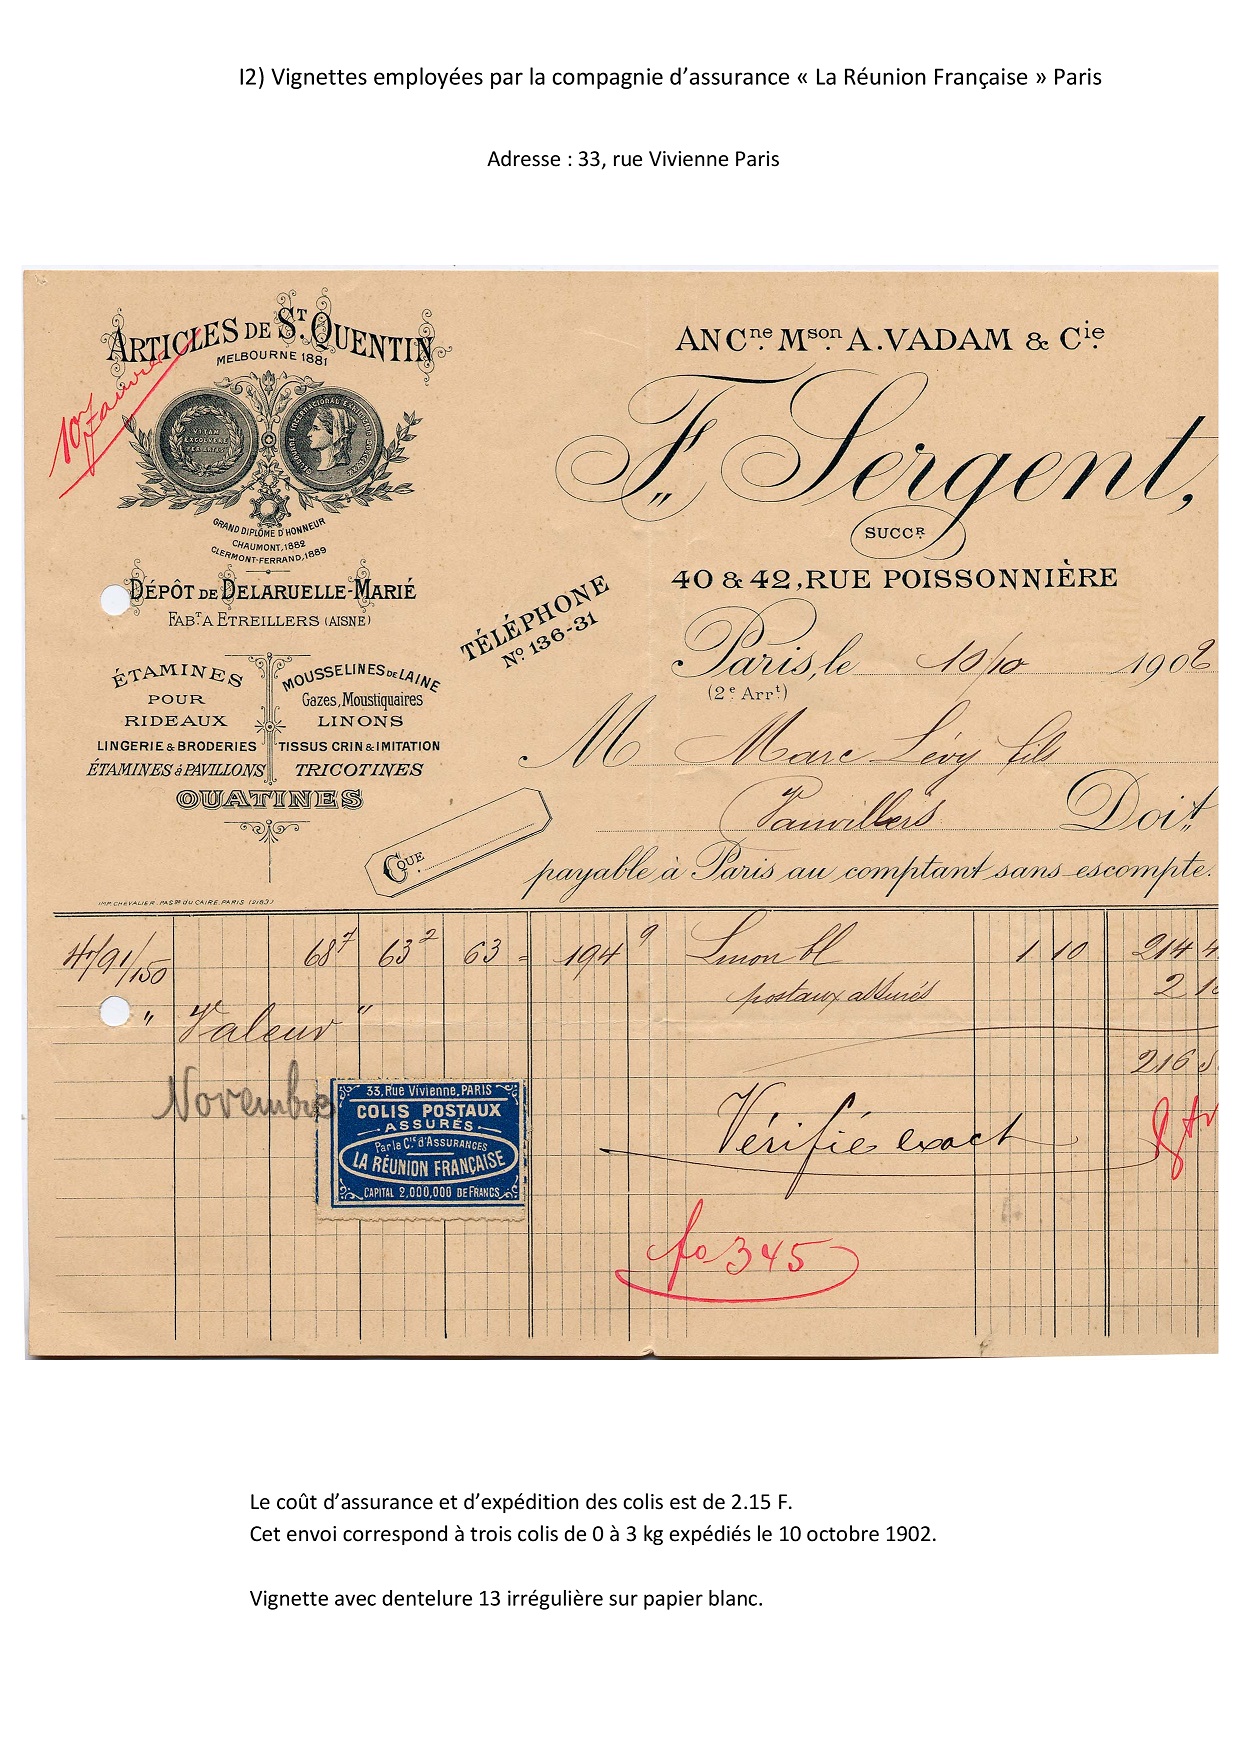 I2) Vignettes employées par la compagnie d’assurance « La Réunion Française » Paris
Adresse : 33, rue Vivienne Paris
ARTICLES DE ST. QUENTIN
MELBOURNE 1881
10 Janvier
VITAM
EXCOLVERE
PER ARTES
MELBOURNE INTERNATIONAL EXHIBITION
GRAND DIPLÔME D'HONNEUR
CHAUMONT, 1882
CLERMONT-FERRAND, 1889
DÉPÔT DE DELARUELLE-MARIÉ
FABT. A ETREILLERS (AISNE)
ÉTAMINES
POUR
RIDEAUX
LINGERIE & BRODERIES
ÉTAMINES à PAVILLONS
MOUSSELINES DE LAINE
Gazes, Moustiquaires
LINONS
TISSUS CRIN & IMITATION
TRICOTINES
OUATINES
ANCne. Mson. A. VADAM & Cie.
F. Sergent,
SUCCR.
40 & 42, RUE POISSONNIÈRE
TÉLÉPHONE
No. 136-31
Paris, le 10/10 1902
(2e Arrt.)
M Marc Lévy fils
Vauvillers Doit
COUE
payable à Paris au comptant sans escompte.
IMP. CHEVALIER. PASGE DU CAIRE. PARIS (2183)
47/91/150 687 632 63 = 1949 Linon bl 1 10 214 4
postaux assurés 2 1
" Valeur "
216 5
Novembre
33, Rue Vivienne, PARIS
COLIS POSTAUX
ASSURÉS
Par la Cie. d'ASSURANCES
LA RÉUNION FRANÇAISE
CAPITAL 2,000,000 DE FRANCS
Vérifié exact
fo 345
Le coût d’assurance et d’expédition des colis est de 2.15 F.
Cet envoi correspond à trois colis de 0 à 3 kg expédiés le 10 octobre 1902.
Vignette avec dentelure 13 irrégulière sur papier blanc.